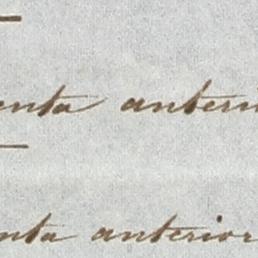 enta anteri
nta anterior